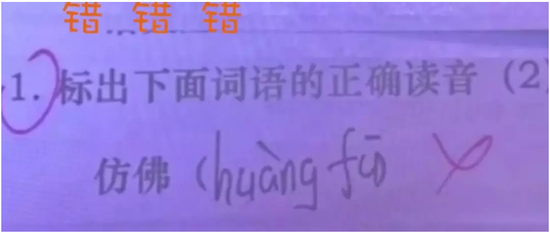 错 错 错
1. 标出下面词语的正确读音（2
仿佛（huàng fū